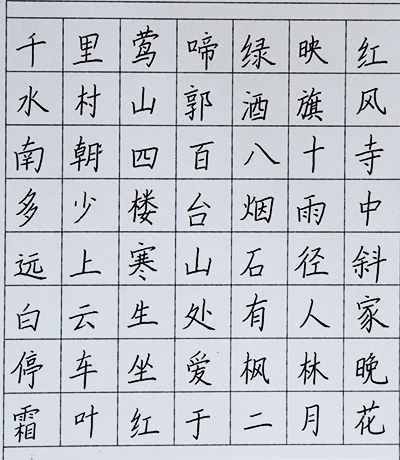 千里莺啼绿映红
水村山郭酒旗风
南朝四百八十寺
多少楼台烟雨中
远上寒山石径斜
白云生处有人家
停车坐爱枫林晚
霜叶红于二月花